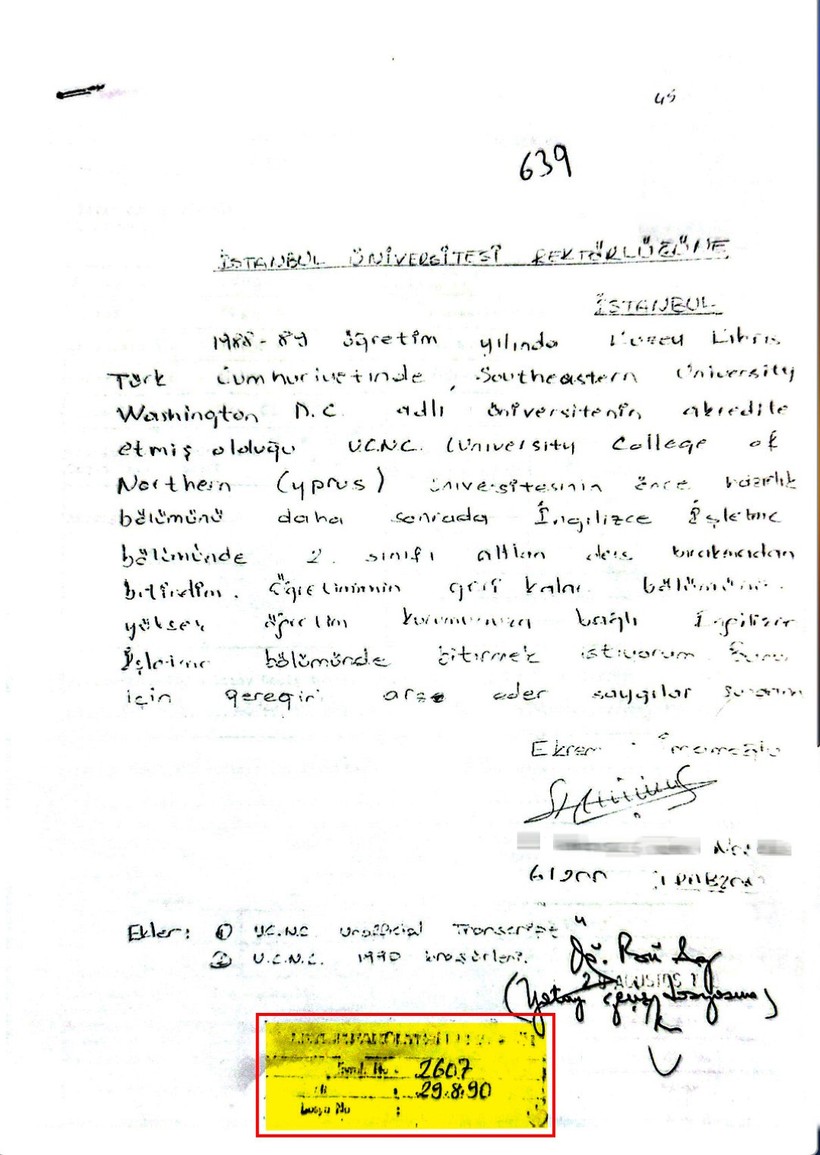 45
639
İSTANBUL ÜNİVERSİTESİ REKTÖRLÜĞÜNE
İSTANBUL
1988-89 öğretim yılında Kuzey Kıbrıs
Türk Cumhuriyetinde, Southeastern University
Washington D.C. adlı üniversitenin akredite
etmiş olduğu U.C.N.C. (University College of
Northern Cyprus) üniversitesinin önce hazırlık
bölümünü daha sonrada İngilizce İşletme
bölümünde 2. sınıfı alttan ders bırakmadan
bitirdim. Öğretimimin geri kalan bölümünü
yüksek öğretim kurumunuza bağlı İngilizce
İşletme bölümünde bitirmek istiyorum
için gereğini arz eder saygılar sunarım
Ekrem İmamoğlu
No:
61200 TRABZON
Ekler: ① U.C.N.C Unofficial Transcript
② U.C.N.C. 1990 broşürleri.
AĞUSTOS
(Yatay geçiş dosyasına)
No : 2607
: 29.8.90
Dosya No :